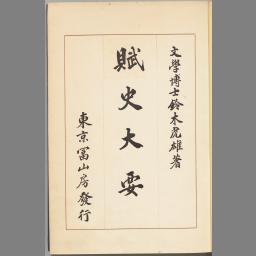 文學博士鈴木虎雄著
賦史大要
東京冨山房發行